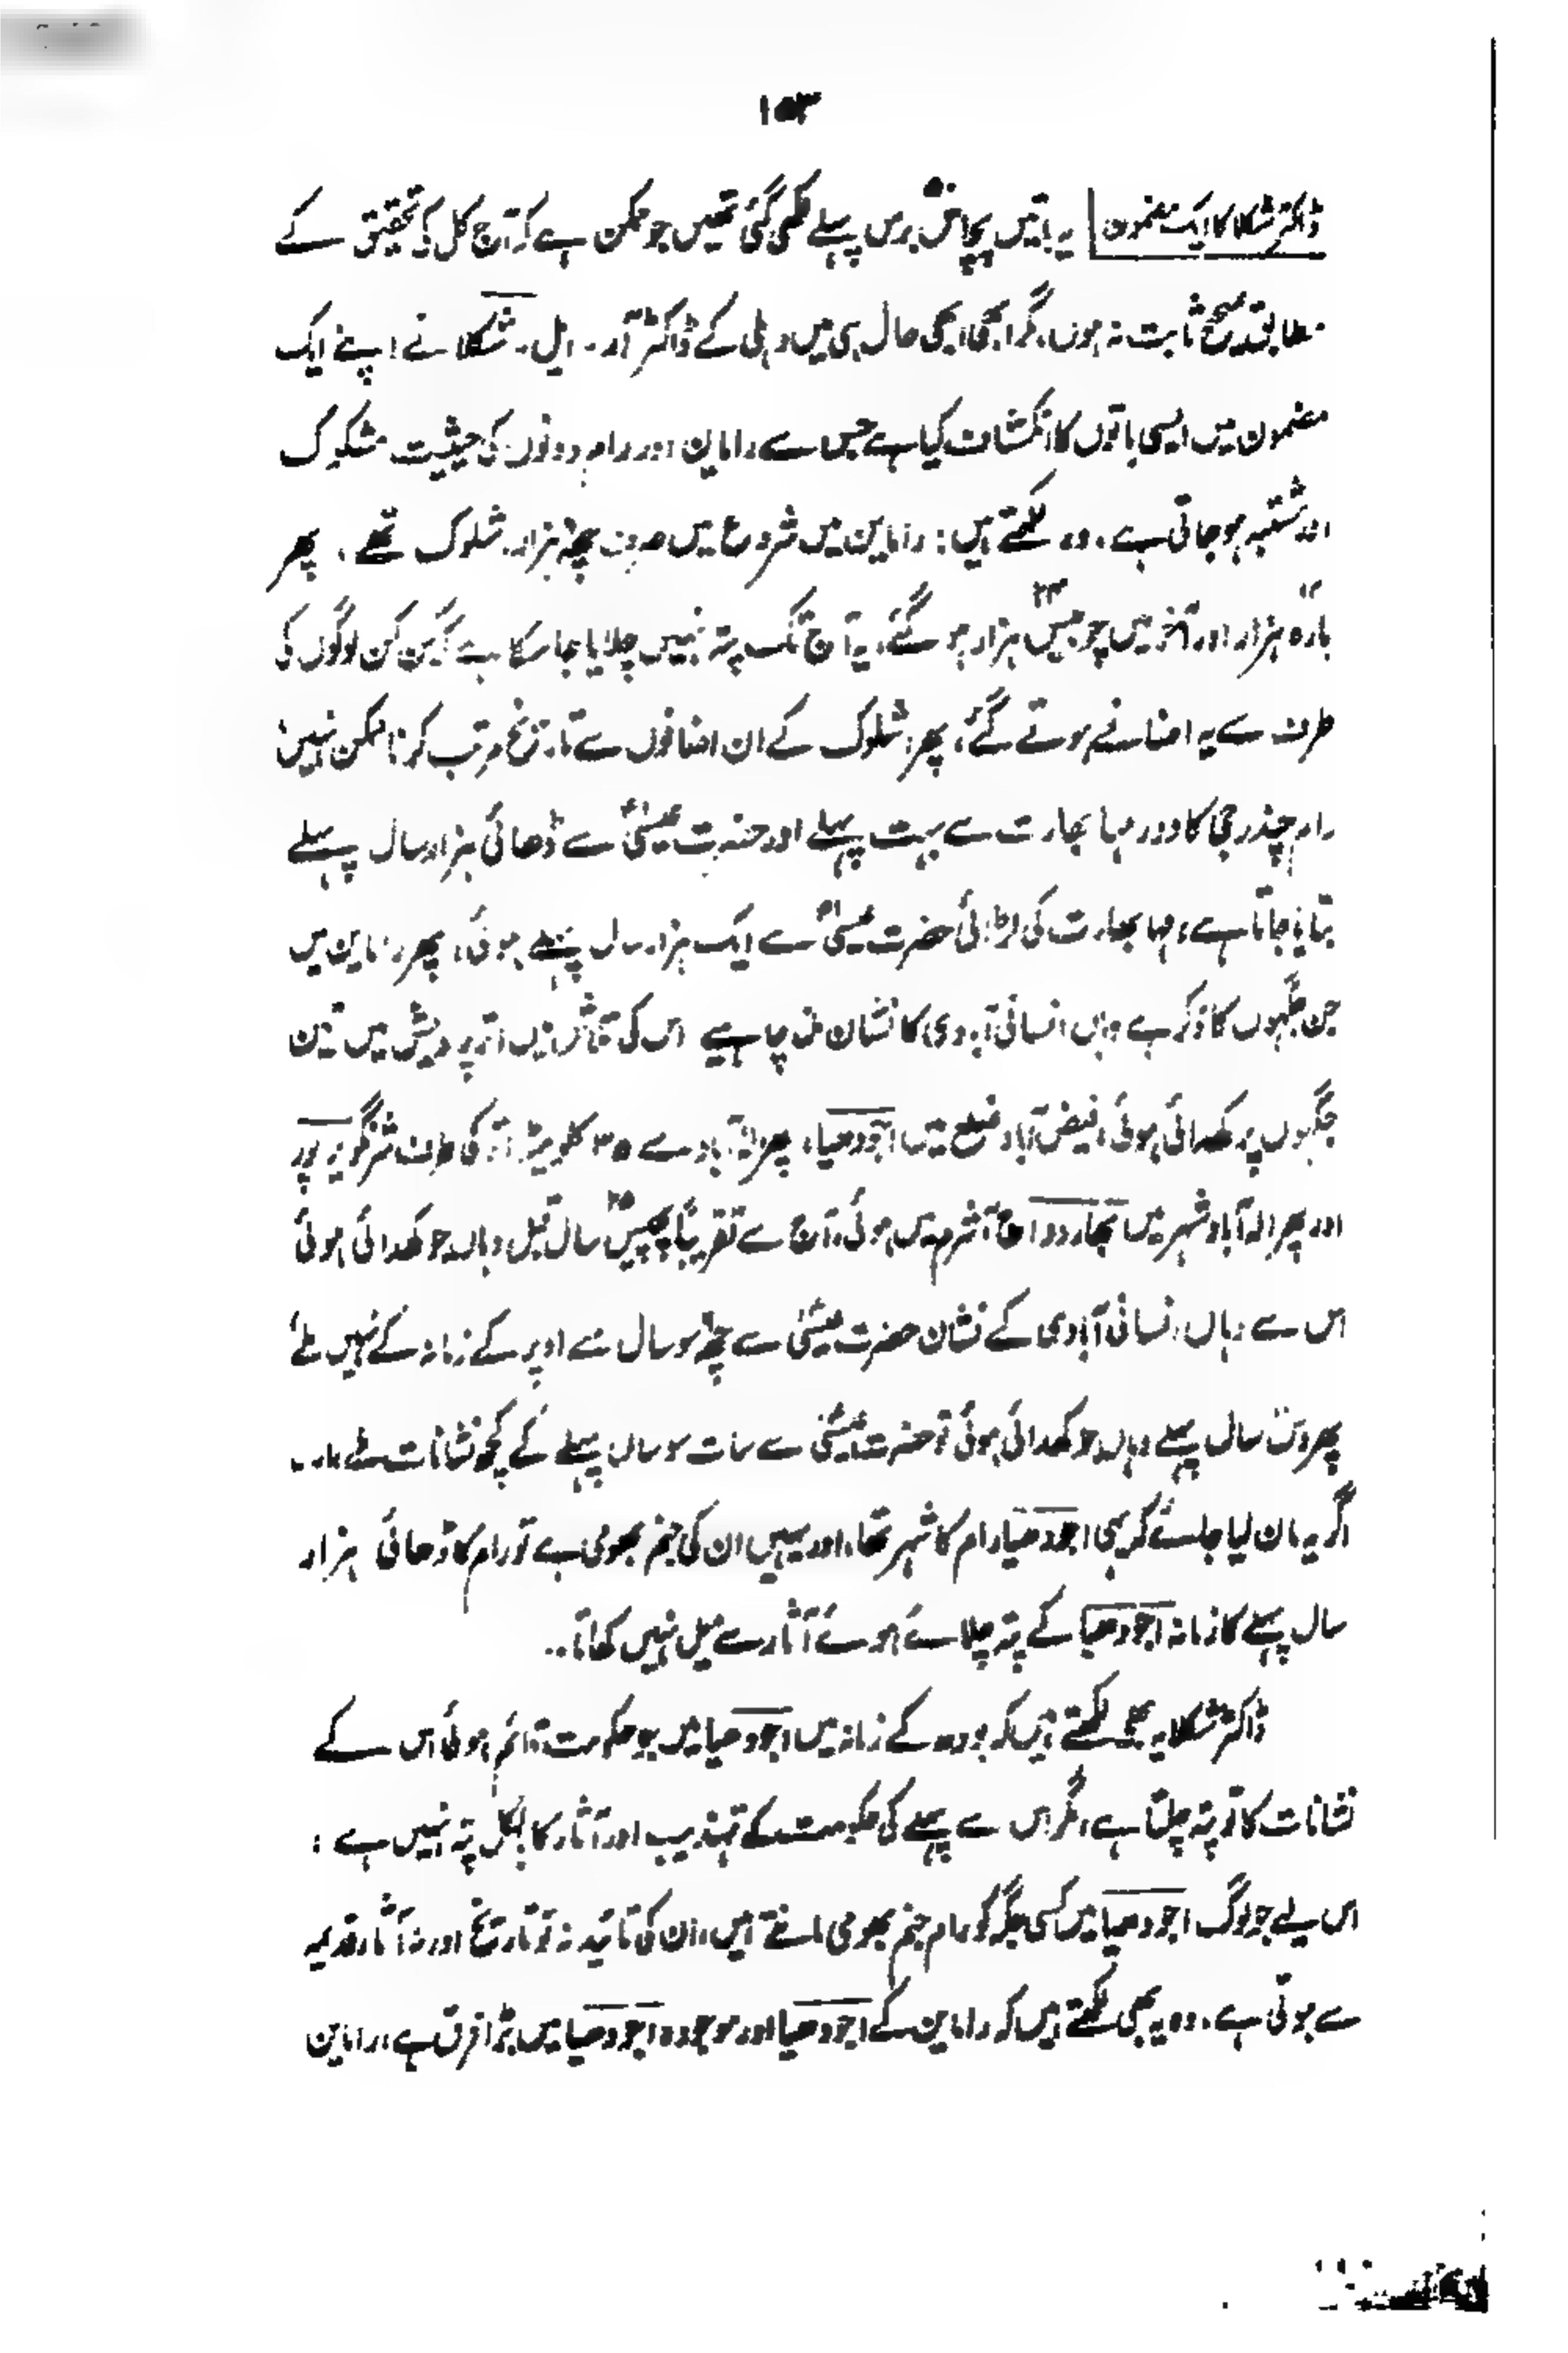 ۱۵۳
ڈاکٹر شکلا کا ایک مضمون یہ باتیں پچاس برس پہلے لکھی گئی تھیں جو ممکن ہے کہ آج کل کی تحقیق کے
مطابق صحیح ثابت نہ ہوں، مگر ابھی ابھی حال ہی میں دہلی کے ڈاکٹر آر۔ ایل۔ شکلا نے اپنے ایک
مضمون میں ایسی باتوں کا انکشاف کیا ہے جس سے رامائن اور رام دونوں کی حیثیت مشکوک
اور مشتبہ ہو جاتی ہے، وہ لکھتے ہیں: رامائن میں شروع میں صرف چھ ہزار شلوک تھے، پھر
بارہ ۱۲ ہزار اور آخر میں چوبیس ۲۴ ہزار ہو گئے، یہ آج تک پتہ نہیں چلایا جا سکا ہے کہ کن کن لوگوں کی
طرف سے یہ اضافے ہوتے گئے، پھر شلوک کے ان اضافوں سے تاریخ مرتب کرنا ممکن نہیں
رام چندر جی کا دور مہا بھارت سے بہت پہلے اور حضرت عیسیٰؑ سے ڈھائی ہزار سال پہلے
بتایا جاتا ہے، مہا بھارت کی لڑائی حضرت عیسیٰؑ سے ایک ہزار سال پہلے ہوئی، پھر رامائن میں
جن جگہوں کا ذکر ہے وہاں انسانی آبادی کا نشان ملنا چاہیے اس کی تلاش میں اتر پردیش میں تین
جگہوں پر کھدائی ہوئی، فیض آباد ضلع میں اجودھیا، پھر الہ آباد سے ۳۵ کلو میٹر اتر کی طرف شرنگویر پور
اور پھر الہ آباد شہر میں بھاردواج آشرم میں ہوئی، آج سے تقریباً پچیس ۲۵ سال قبل وہاں جو کھدائی ہوئی
اس سے وہاں انسانی آبادی کے نشان حضرت عیسیٰؑ سے چھ سو سال سے اوپر کے زمانہ کے نہیں ملے
پھر دس سال پہلے وہاں جو کھدائی ہوئی تو حضرت عیسیٰؑ سے سات سو سال پہلے کے کچھ نشانات ملے ہیں۔
اگر یہ مان لیا جائے کہ یہی اجودھیا رام کا شہر تھا، اور یہیں ان کی جنم بھومی ہے تو رام کا ڈھائی ہزار
سال پہلے کا زمانہ اجودھیا کے پتہ چلائے ہوئے آثار سے میل نہیں کھاتا..
ڈاکٹر شکلا یہ بھی لکھتے ہیں کہ بودھ کے زمانہ میں اجودھیا میں جو حکومت قائم ہوئی اس کے
نشانات کا تو پتہ چلتا ہے، مگر اس سے پہلے کی حکومت کے تہذیب اور آثار کا بالکل پتہ نہیں ہے؛
اس لیے جو لوگ اجودھیا میں کسی جگہ کو رام جنم بھومی مانتے ہیں، ان کی تائید نہ تو تاریخ اور نہ آثار قدیمہ
سے ہوتی ہے، وہ یہ بھی لکھتے ہیں کہ رامائن کے اجودھیا اور موجودہ اجودھیا میں بڑا فرق ہے، رامائن